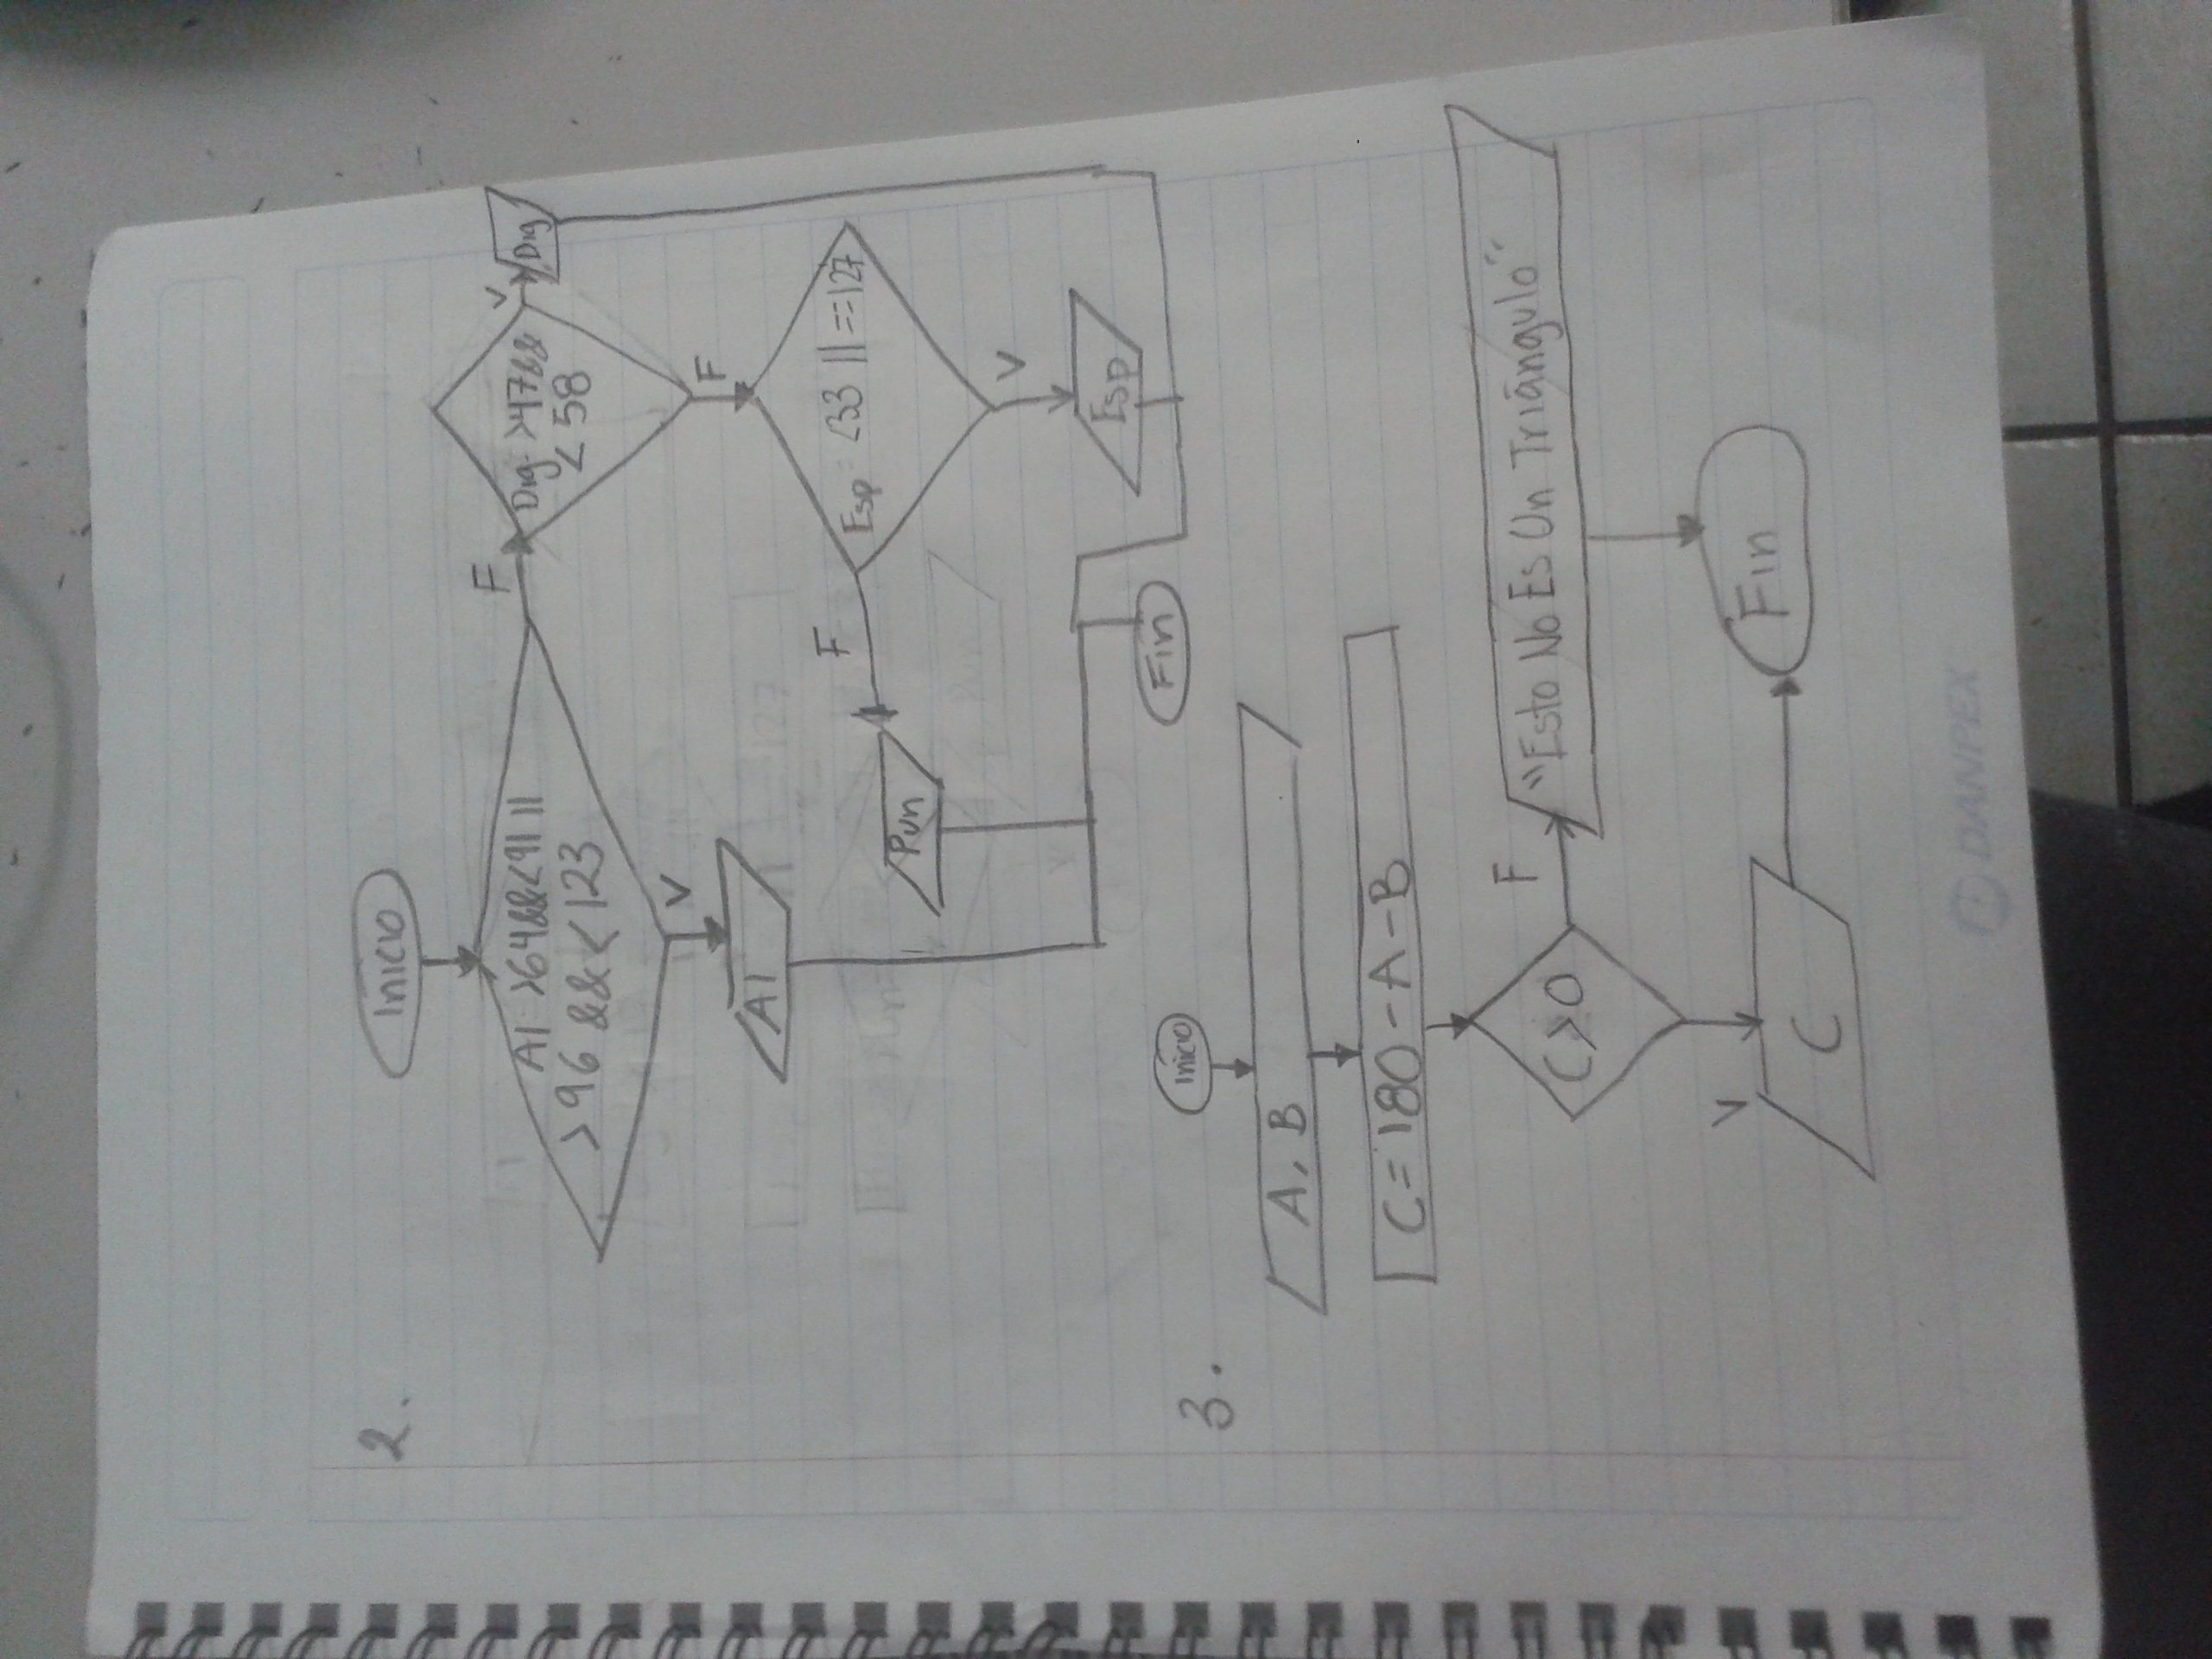 2.
Inicio
Al = >64&&<91 ||
>96 && < 123
F
V
Al
Dig = >47&&
< 58
V
Dig
F
Esp = <33 || ==127
F
V
Pun
Esp
Fin
3.
Inicio
A, B
C = 180 - A - B
C > 0
F
"Esto No Es Un Triángulo"
V
C
Fin
DANPEX